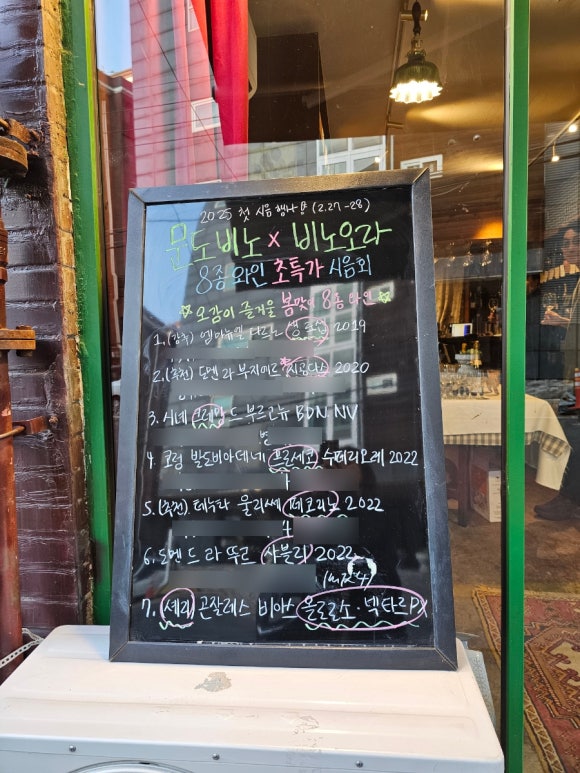 2025 첫 시음 행사 (2.27-28)
문도비노 x 비노오라
8종 와인 초특가 시음회
오감이 즐거울 봄맞이 8종 와인
1. 생로랑 2019
2. (추천) 도멘 라 부지에르 지공다스 2020
3. 시네 크레망 드 부르고뉴 BDN NV
4. 코럼 발도비아데네 프로세코 수페리오레 2022
5. (추천) 테누타 울리쎄 페코리노 2022
6. 도멘 드 라 뚜르 샤블리 2022
7. 셰리 곤잘레스 비아스 올로로소·넥타르PX